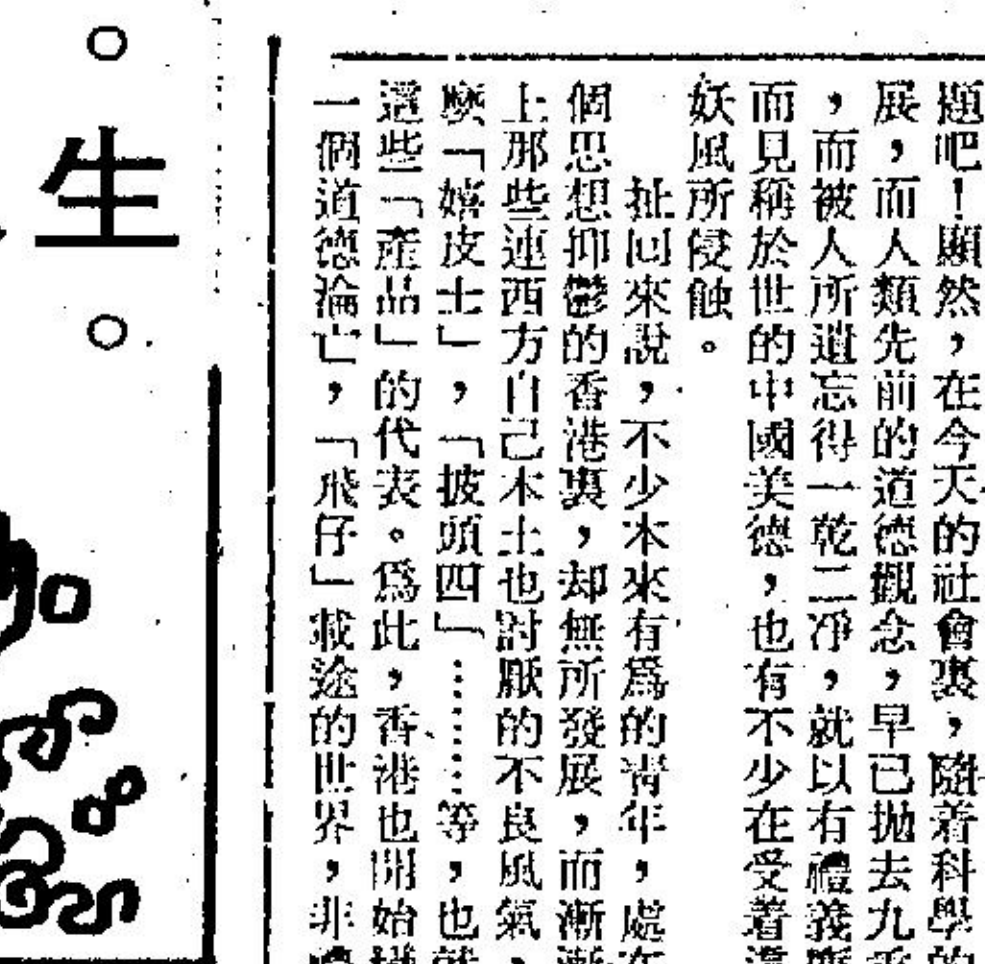 題吧！顯然，在今天的社會裏，隨着科學的
展，而人類先前的道德觀念，早已拋去九
，而被人所遺忘得一乾二凈，就以有禮義
而見稱於世的中國美德，也有不少在受着
妖風所侵蝕。
扯回來說，不少本來有爲的青年，處在
個思想抑鬱的香港裏，却無所發展，而漸漸
上那些連西方自己本土也討厭的不良風氣，
麽「嬉皮士」，「披頭四」……等，也就
這些「產品」的代表。爲此，香港也開始變
一個道德淪亡，「飛仔」載途的世界，非
。生。